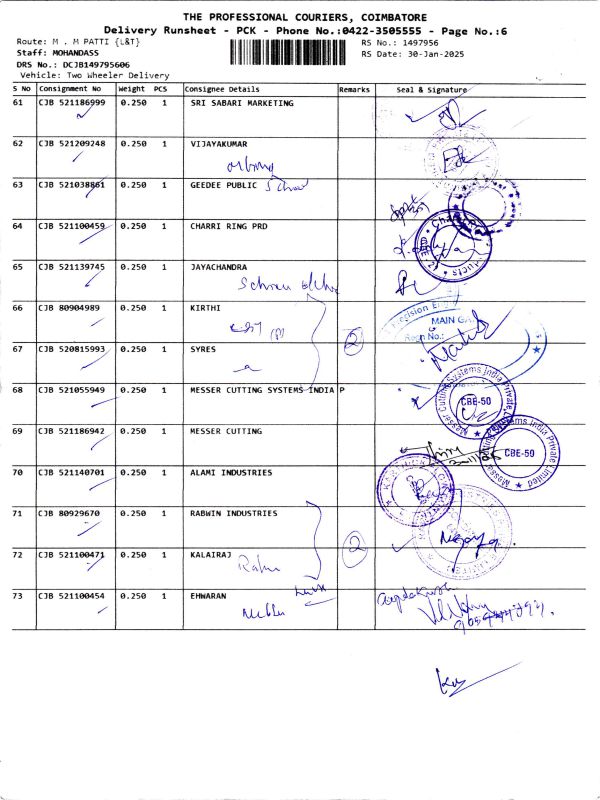 THE PROFESSIONAL COURIERS, COIMBATORE
Delivery Runsheet - PCK - Phone No.:0422-3505555 - Page No.:6
Route: M . M PATTI {L&T}
RS No.: 1497956
Staff: MOHANDASS
RS Date: 30-Jan-2025
DRS No.: DCJB149795606
Vehicle: Two Wheeler Delivery
S No Consignment No Weight PCS Consignee Details Remarks Seal & Signature
61 CJB 521186999 0.250 1 SRI SABARI MARKETING
62 CJB 521209248 0.250 1 VIJAYAKUMAR
63 CJB 521038861 0.250 1 GEEDEE PUBLIC School
64 CJB 521100459 0.250 1 CHARRI RING PRD
65 CJB 521139745 0.250 1 JAYACHANDRA
66 CJB 80904989 0.250 1 KIRTHI
2
MAIN GA
Regn No.:
67 CJB 520815993 0.250 1 SYRES
68 CJB 521055949 0.250 1 MESSER CUTTING SYSTEMS INDIA P
Messer Cutting Systems India Private Limited
CBE-50
69 CJB 521186942 0.250 1 MESSER CUTTING
CBE-50
70 CJB 521140701 0.250 1 ALAMI INDUSTRIES
71 CJB 80929670 0.250 1 RABWIN INDUSTRIES
2
72 CJB 521100471 0.250 1 KALAIRAJ
73 CJB 521100454 0.250 1 EHWARAN